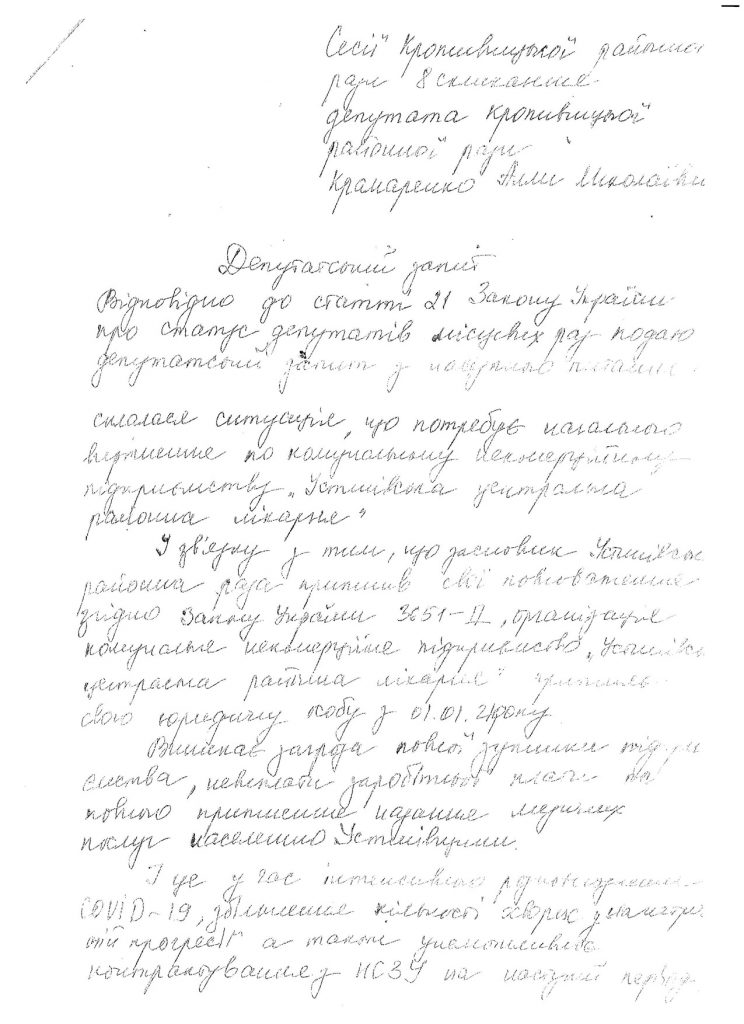 Сесії Кропивницької районної
ради 8 скликання
депутата Кропивницької
районної ради
Крамаренко Алли Миколаївни
Депутатський запит
Відповідно до статті 21 Закону України
про статус депутатів місцевих рад подаю
депутатський запит з наступного питання
склалася ситуація, що потребує нагального
по комунальному некомерційному
підприємству „Устинівська центральна
районна лікарня"
У зв'язку з тим, що засновник Устинівська
районна рада припинив свої повноваження
згідно Закону України 3651-Д, організація
комунальне некомерційне підприємство „Устинівська
центральна районна лікарня"
свою юридичну особу з 01.01.21 року
Виникає загроза повної зупинки підпри
ємства, невиплати заробітної плати та
повного припинення надання медичних
послуг населенню Устинівщини.
І це у час інтенсивного розповсюдження
COVID-19, збільшення кількості хворих
прогресії а також
контрактування з НСЗУ на наступний період